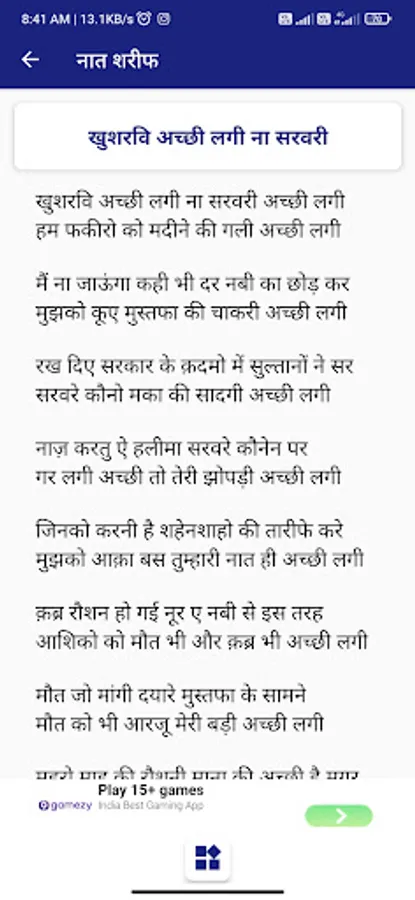 8:41 AM | 13.1KB/s
नात शरीफ
खुशरवि अच्छी लगी ना सरवरी
खुशरवि अच्छी लगी ना सरवरी अच्छी लगी
हम फकीरो को मदीने की गली अच्छी लगी
मैं ना जाऊंगा कही भी दर नबी का छोड़ कर
मुझको कूए मुस्तफा की चाकरी अच्छी लगी
रख दिए सरकार के क़दमो में सुल्तानों ने सर
सरवरे कौनो मका की सादगी अच्छी लगी
नाज़ करतु ऐ हलीमा सरवरे कौनेन पर
गर लगी अच्छी तो तेरी झोपड़ी अच्छी लगी
जिनको करनी है शहेनशाहो की तारीफे करे
मुझको आक़ा बस तुम्हारी नात ही अच्छी लगी
क़ब्र रौशन हो गई नूर ए नबी से इस तरह
आशिको को मौत भी और क़ब्र भी अच्छी लगी
मौत जो मांगी दयारे मुस्तफा के सामने
मौत को भी आरजू मेरी बड़ी अच्छी लगी
की रौशनी माना की अच्छी है मगर
Play 15+ games
gomezy India Best Gaming App